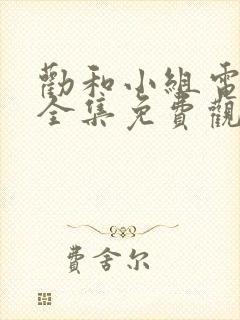 勸和小組電
全集免費觀
費舍尔